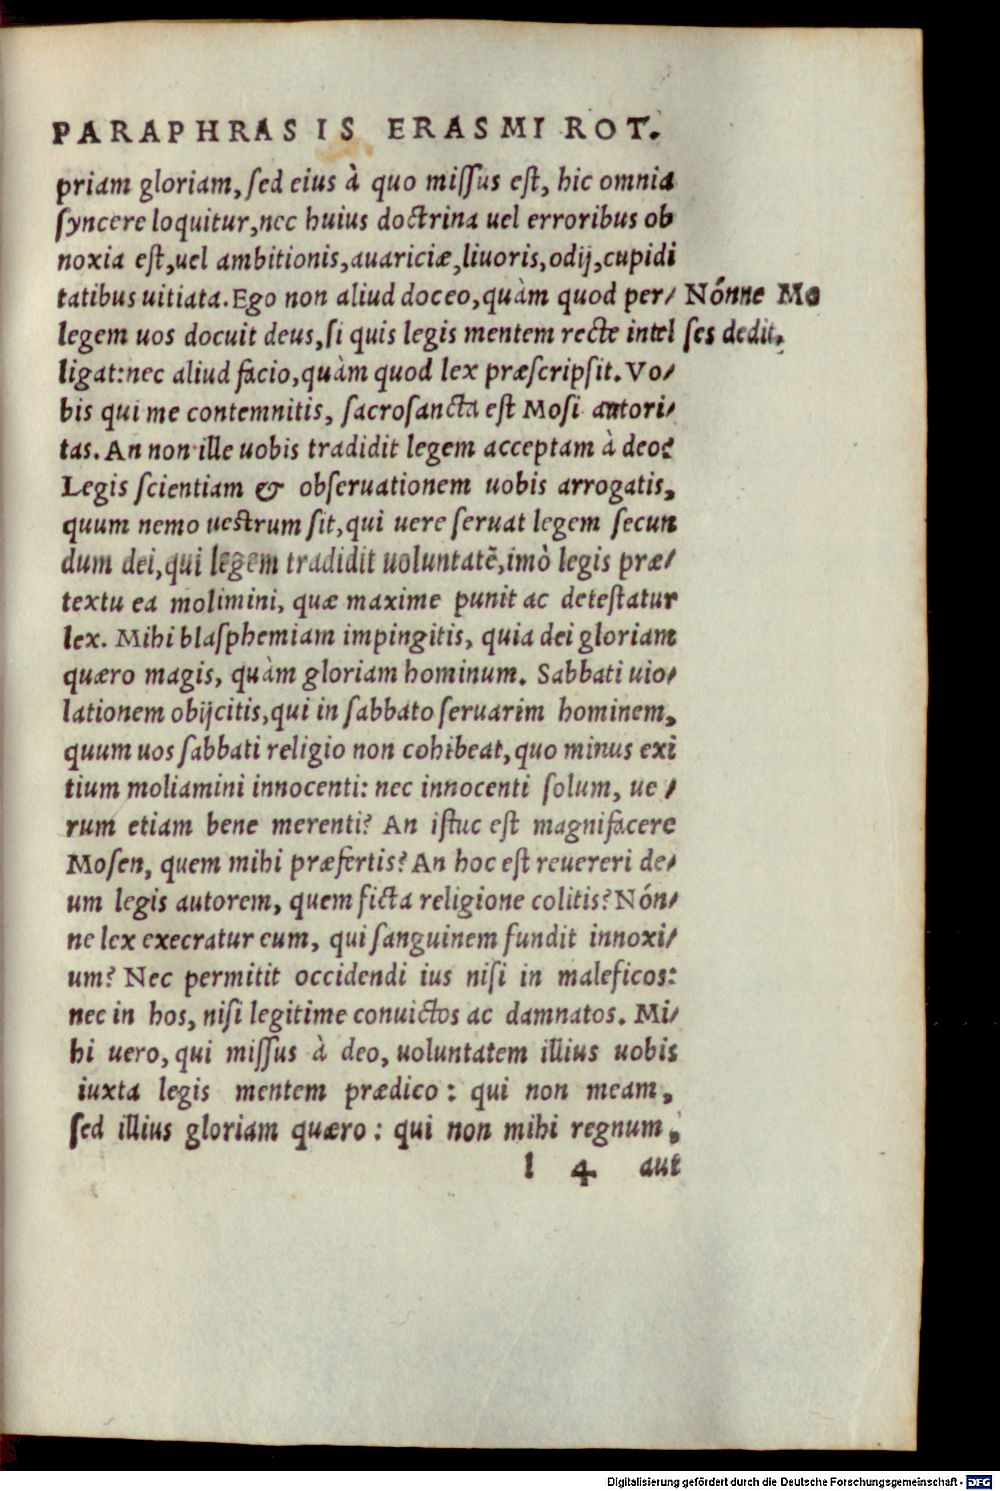 PARAPHRASIS ERASMI ROT.
priam gloriam, sed eius à quo missus est, hic omnia
syncere loquitur, nec huius doctrina uel erroribus ob
noxia est, uel ambitionis, auariciæ, liuoris, odij, cupidi
tatibus uitiata. Ego non aliud doceo, quàm quod per/
Nónne Mo
legem uos docuit deus, si quis legis mentem recte intel
ses dedit.
ligat: nec aliud facio, quàm quod lex præscripsit. Vo/
bis qui me contemnitis, sacrosancta est Mosi autori/
tas. An non ille uobis tradidit legem acceptam à deo?
Legis scientiam & obseruationem uobis arrogatis,
quum nemo uestrum sit, qui uere seruat legem secun
dum dei, qui legem tradidit uoluntatē, imò legis præ/
textu ea molimini, quæ maxime punit ac detestatur
lex. Mihi blasphemiam impingitis, quia dei gloriam
quæro magis, quàm gloriam hominum. Sabbati uio/
lationem obijcitis, qui in sabbato seruarim hominem,
quum uos sabbati religio non cohibeat, quo minus exi
tium moliamini innocenti: nec innocenti solum, ue/
rum etiam bene merenti? An istuc est magnifacere
Mosen, quem mihi præfertis? An hoc est reuereri de/
um legis autorem, quem ficta religione colitis? Nón/
ne lex execratur eum, qui sanguinem fundit innoxi/
um? Nec permitit occidendi ius nisi in maleficos:
nec in hos, nisi legitime conuictos ac damnatos. Mi/
hi uero, qui missus à deo, uoluntatem illius uobis
iuxta legis mentem prædico: qui non meam,
sed illius gloriam quæro: qui non mihi regnum,
l 4 aut
Digitalisierung gefördert durch die Deutsche Forschungsgemeinschaft - DFG